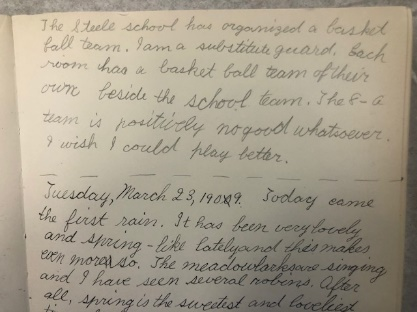 The Steele school has organized a basket
ball team. I am a substitute guard. Each
room has a basket ball team of their
own beside the school team. The 8-a
team is positively no good whatsoever.
I wish I could play better.
Tuesday, March 23, 1909. Today came
the first rain. It has been very lovely
and spring-like lately and this makes
even more so. The meadowlarks are singing
and I have seen several robins. After
all, spring is the sweetest and loveliest